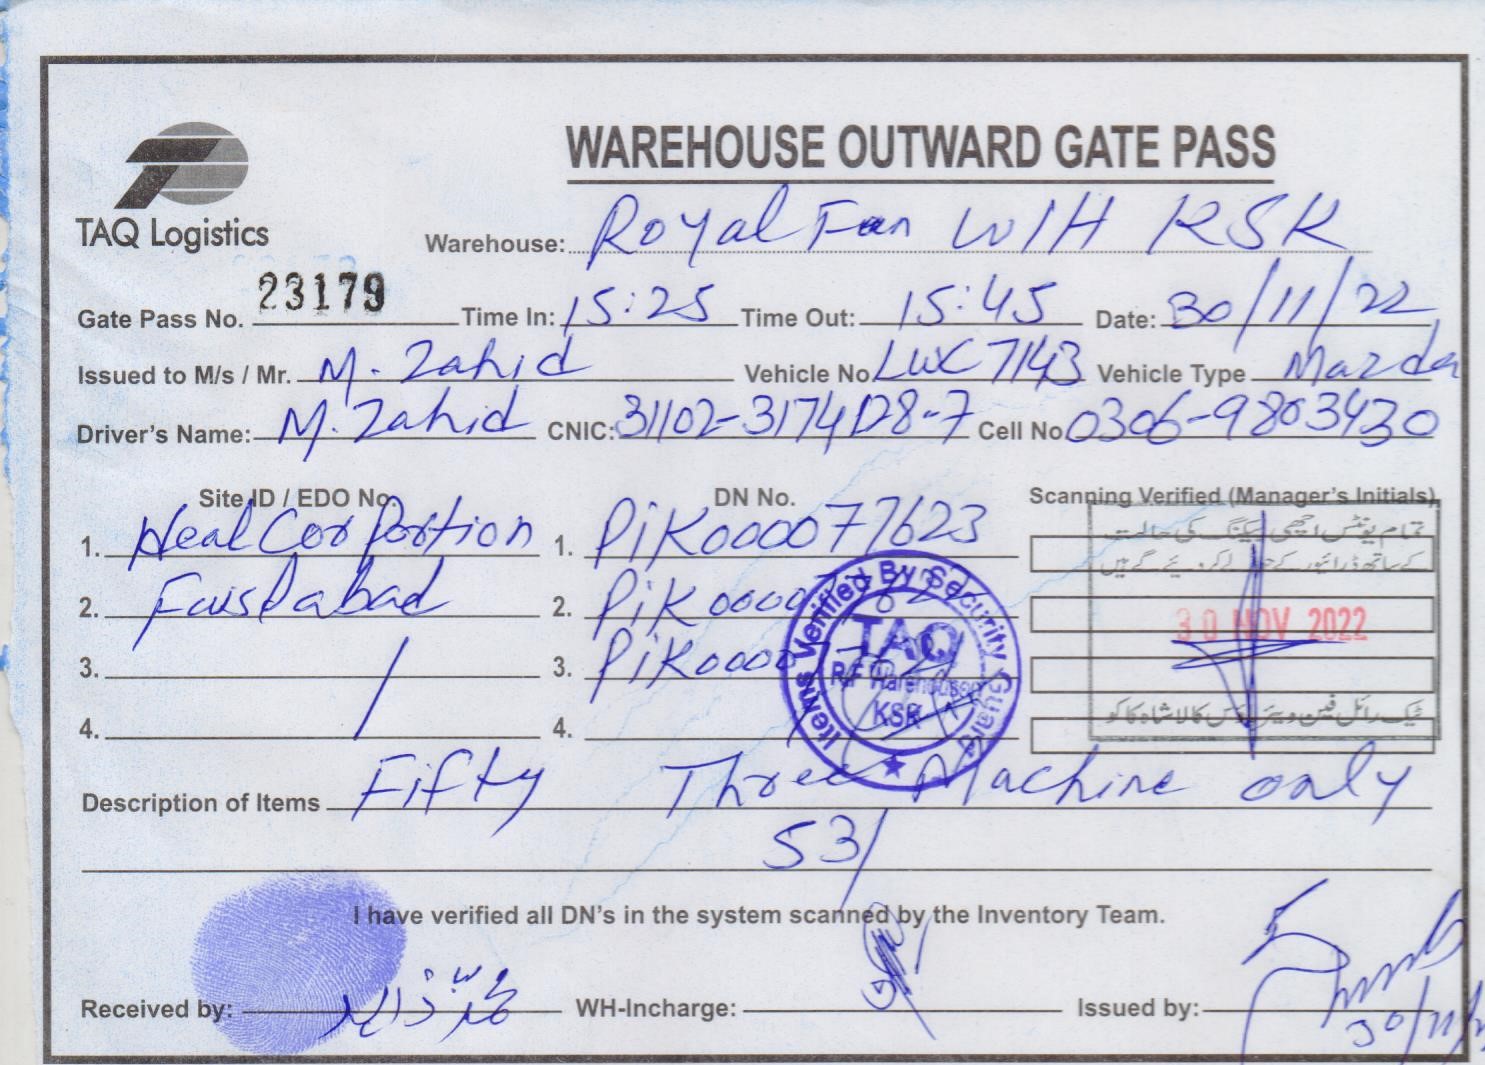 TAQ Logistics
WAREHOUSE OUTWARD GATE PASS
Warehouse: Royal Fan W/H KSK
Gate Pass No. 23179 Time In: 15:25 Time Out: 15:45 Date: 30/11/22
Issued to M/s / Mr. M. Zahid Vehicle No. LWC 7143 Vehicle Type Mazda
Driver's Name: M. Zahid CNIC: Cell No. 0306-9803430
Site ID / EDO No. DN No. Scanning Verified (Manager's Initials)
1. Heal Corportion 1. PiK000077623
2. Faislabad 2.
3. 3.
4. / 4.
تمام یونٹس اچھی پیکنگ کی حالت
کے ساتھ ڈرائیور کے حوالے کر دیئے گئے ہیں
30 NOV 2022
Items Verified By Security Guard
TAQ
R/F Warehouse
KSK
Description of Items Fifty Three Machine only
53/
I have verified all DN's in the system scanned by the Inventory Team.
Received by: محمد زاہد WH-Incharge: Issued by:
30/11/